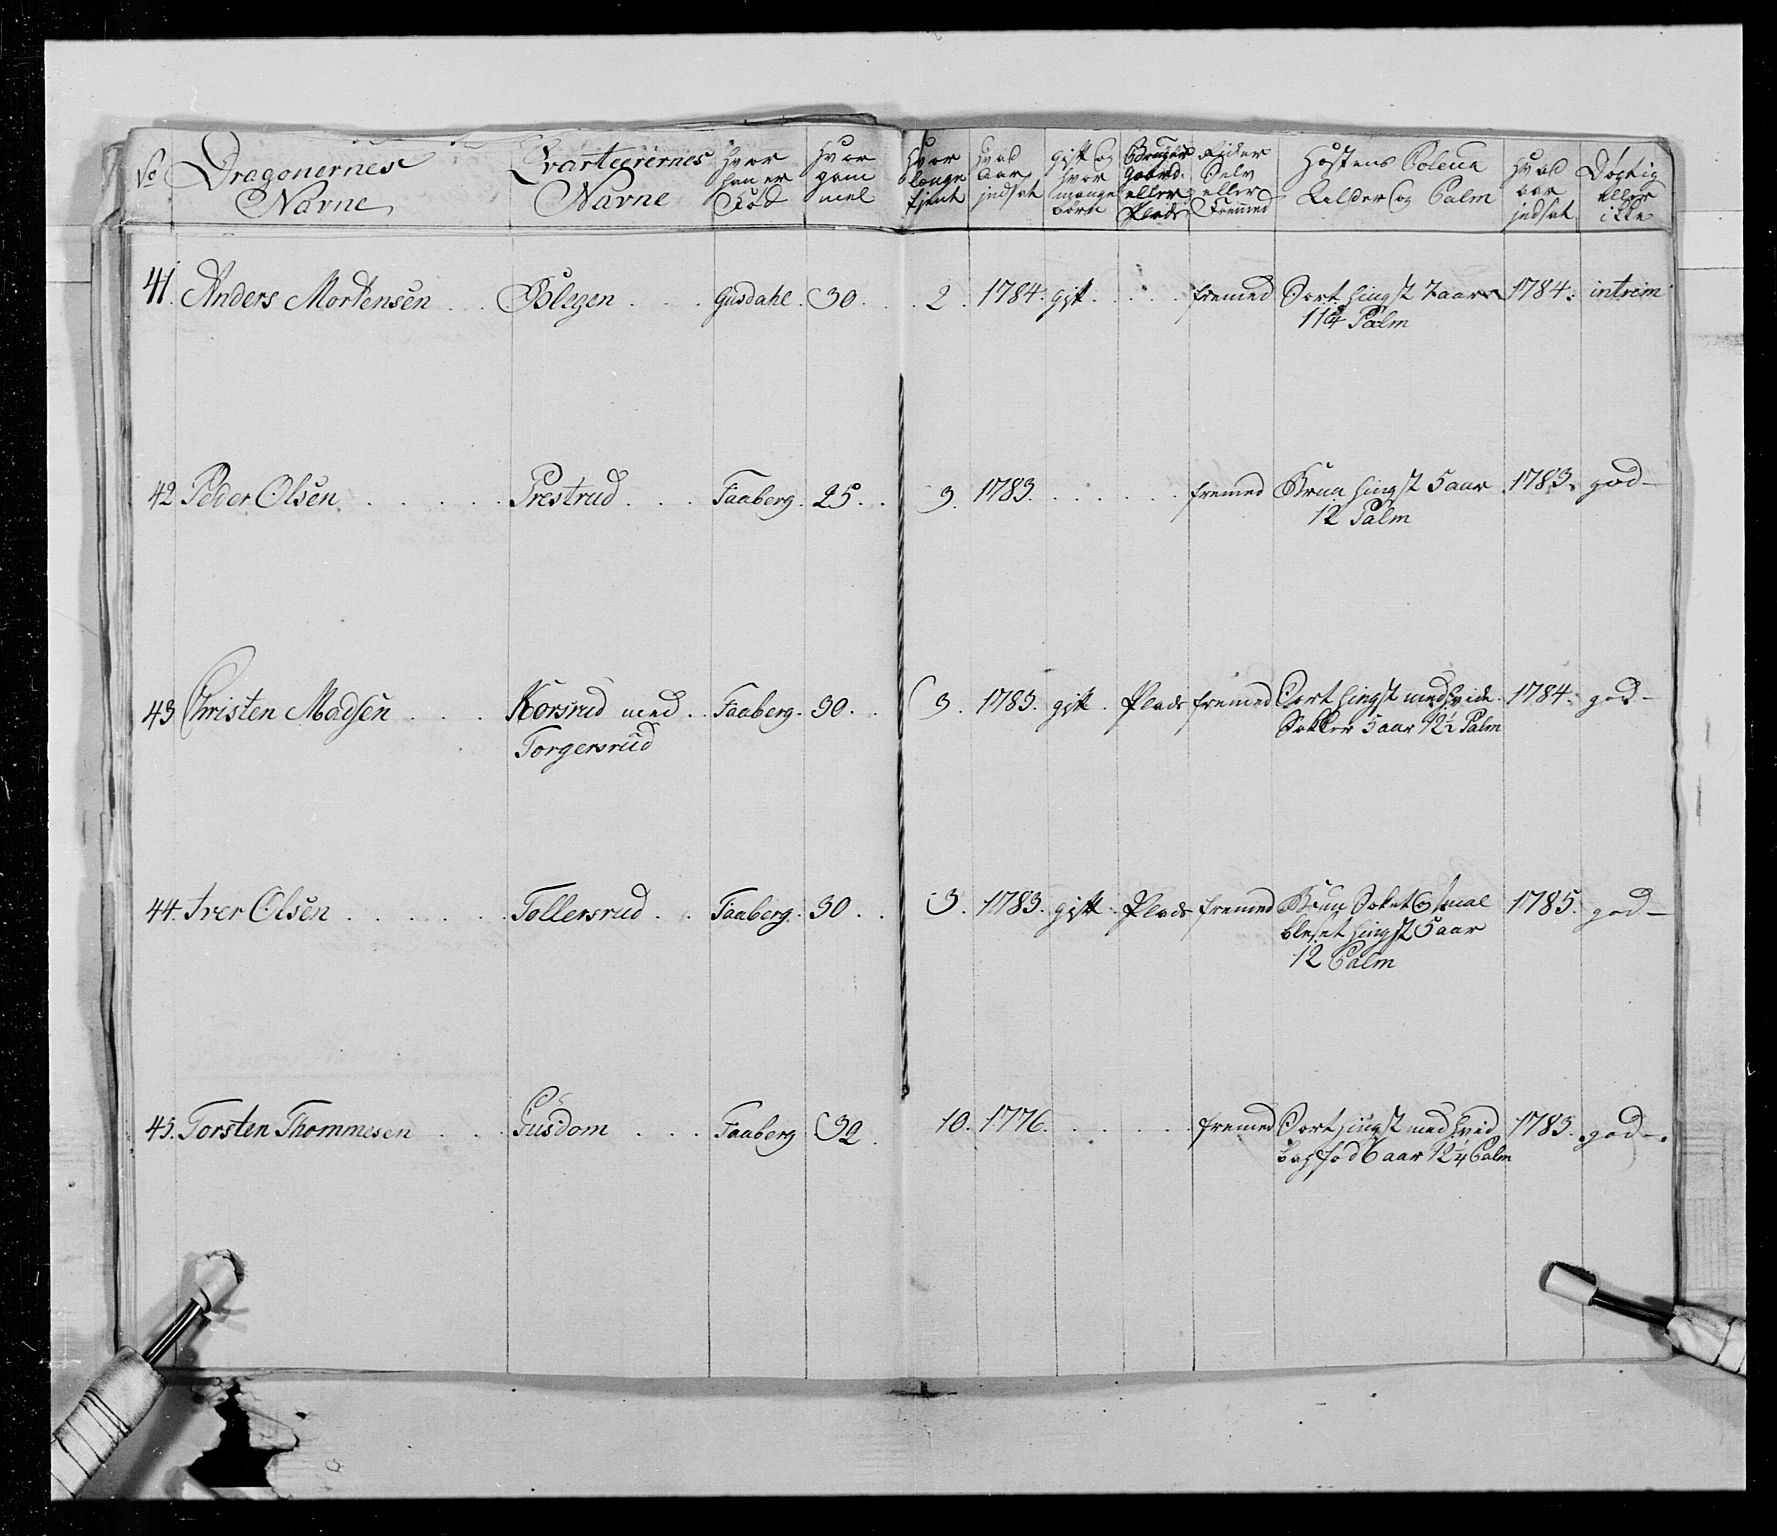 No Dragonernes Navne
Qvarteerernes Navne
Hvor han er Fød
Hvor gam mel
Hvor længe tjent
Hvad Aar indsat
gift og hvor mange børn
Bruger Gaard eller Plads
Rider Selv eller Fremmed
Hæstens Coleur Aelder og Palm
Hvad aar indsat
Dygtig eller ikke
41. Anders Mortensen . . Gusdahl . 30 . . 2 . 1784. gift . . . . fremed Sort hingst 7 aar 1784. intrem
Palm
42 Peder Olsen . . . . . Prestrud . . . Faaberg . 25 . . 3. 1783. . . . . . fremed Brun hingst 5 aar 1783. god
12 Palm
43 Christen Madsen . . . Korsrud med . . Faaberg . 30 . . 3 . 1783. gift . Plads fremed Sort hingst med hvide 1784. god
Torgersrud Sokker 5 aar 12½ Palm
44. Iver Olsen . . . . . . Tollersrud . . Faaberg . 30 . . 3 . 1783. gift . Plads fremed Brun Soket & smal 1785. god
bleset hingst 5 aar
12 Palm
45. Torsten Thommesen . . Gusdom . . . Faaberg 32 . 10. 1776. . . . . . fremed Sort hingst med hvid 1783. god
bagfod 6 aar 12¼ Palm